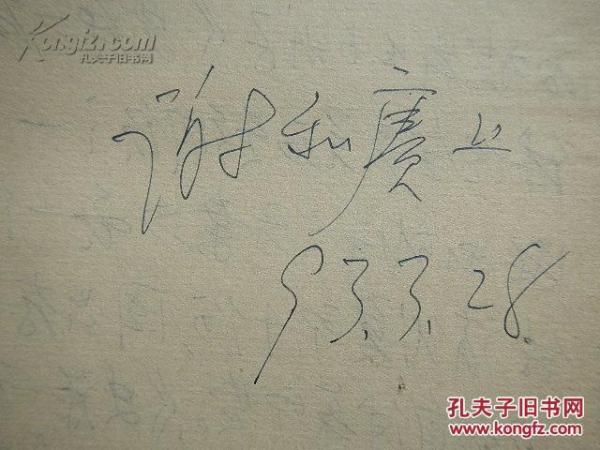 Kongfz.com
孔夫子旧书网
谢和赓上
93.3.28.
孔夫子旧书网
www.kongfz.com